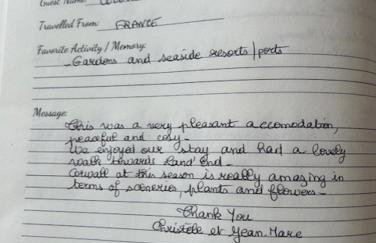 Guest Name:
Travelled From: FRANCE
Favorite Activity / Memory:
- Gardens and seaside resorts / ports
Message:
This was a very pleasant accomodation,
peaceful and cosy -
We enjoyed our stay and had a lovely
walk towards Land End -
Cornwall at this season is really amazing in
terms of sceneries, plants and flowers -
Thank You
Christelle et Jean-Marc